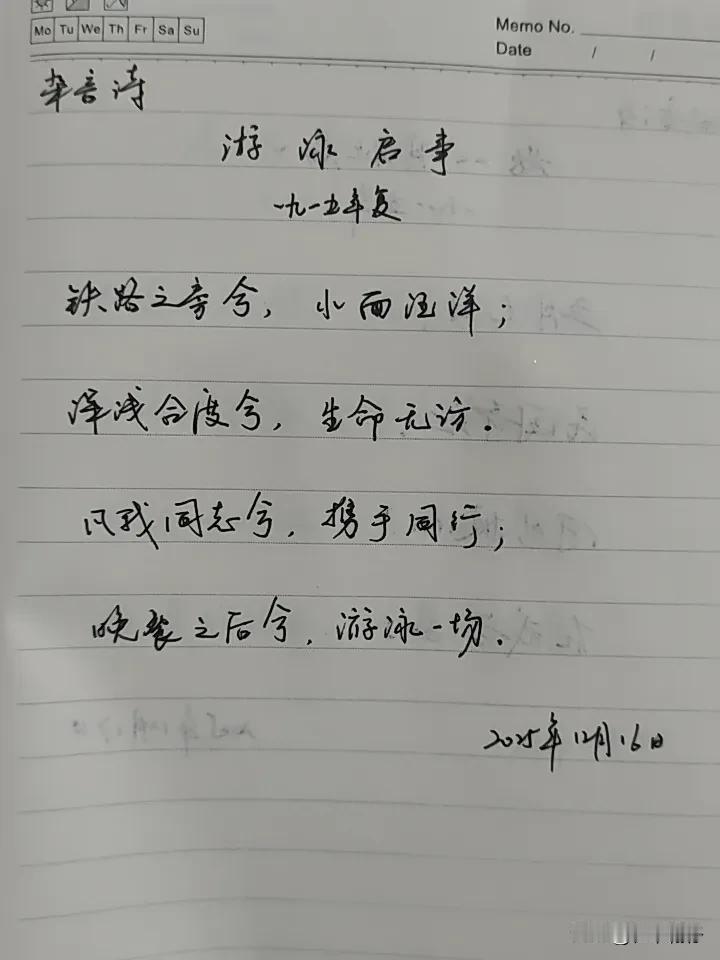 Mo Tu We Th Fr Sa Su
Memo No.
Date / /
音诗
游泳启事
一九一五年夏
铁路之旁兮，水面汪洋；
深浅合度兮，生命无妨．
凡我同志兮，携手同行；
晚餐之后兮，游泳一场．
2025年12月16日